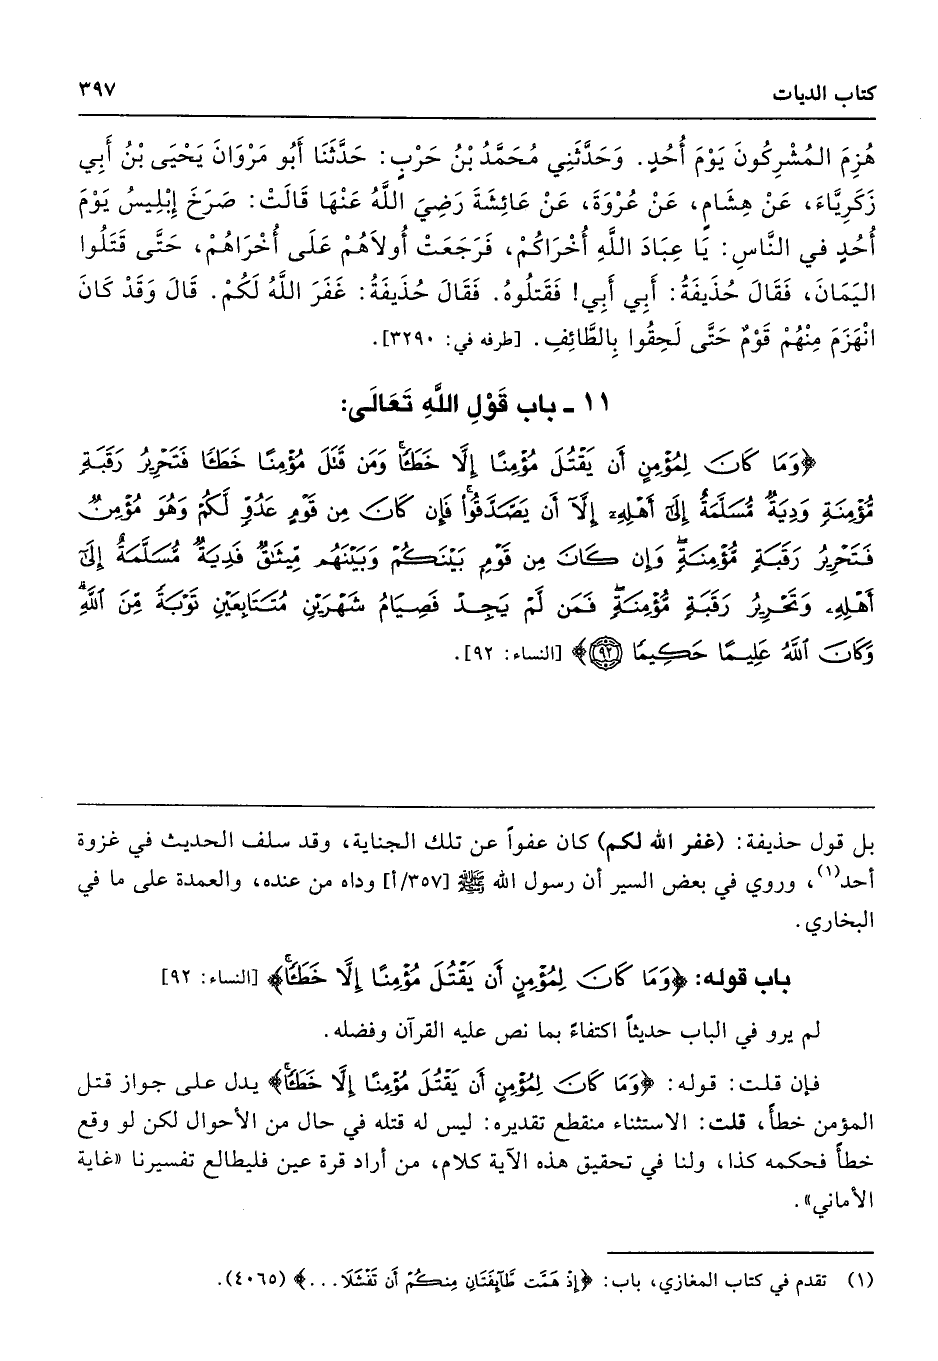 كتاب الديات ٣٩٧
هُزِمَ المُشْرِكُونَ يَوْمَ أُحُدٍ. وَحَدَّثَنِي مُحَمَّدُ بْنُ حَرْبٍ: حَدَّثَنَا أَبُو مَرْوَانَ يَحْيَى بْنُ أَبِي
زَكَرِيَّاءَ، عَنْ هِشَامٍ، عَنْ عُرْوَةَ، عَنْ عَائِشَةَ رَضِيَ اللَّهُ عَنْهَا قَالَتْ: صَرَخَ إِبْلِيسُ يَوْمَ
أُحُدٍ في النَّاسِ: يَا عِبَادَ اللَّهِ أُخْرَاكُمْ، فَرَجَعَتْ أُولاَهُمْ عَلَى أُخْرَاهُمْ، حَتَّى قَتَلُوا
اليَمَانَ، فَقَالَ حُذَيفَةُ: أَبِي أَبِي! فَقَتلُوهُ. فَقَالَ حُذَيفَةُ: غَفَرَ اللَّهُ لَكُمْ. قَالَ وَقَدْ كَانَ
انْهَزَمَ مِنْهُمْ قَوْمٌ حَتَّى لَحِقُوا بِالطَّائِفِ. [طرفه في: ٣٢٩٠].
١١ ـ باب قَوْلِ اللَّهِ تَعَالَى:
﴿وَمَا كَانَ لِمُؤْمِنٍ أَن يَقْتُلَ مُؤْمِنًا إِلَّا خَطَـًٔاۚ وَمَن قَتَلَ مُؤْمِنًا خَطَـًٔا فَتَحْرِيرُ رَقَبَةٍ
مُّؤْمِنَةٍ وَدِيَةٌ مُّسَلَّمَةٌ إِلَىٰٓ أَهْلِهِۦٓ إِلَّآ أَن يَصَّدَّقُوا۟ۚ فَإِن كَانَ مِن قَوْمٍ عَدُوٍّ لَّكُمْ وَهُوَ مُؤْمِنٌ
فَتَحْرِيرُ رَقَبَةٍ مُّؤْمِنَةٍۖ وَإِن كَانَ مِن قَوْمٍۭ بَيْنَكُمْ وَبَيْنَهُم مِّيثَـٰقٌ فَدِيَةٌ مُّسَلَّمَةٌ إِلَىٰٓ
أَهْلِهِۦ وَتَحْرِيرُ رَقَبَةٍ مُّؤْمِنَةٍۖ فَمَن لَّمْ يَجِدْ فَصِيَامُ شَهْرَيْنِ مُتَتَابِعَيْنِ تَوْبَةً مِّنَ ٱللَّهِۗ
وَكَانَ ٱللَّهُ عَلِيمًا حَكِيمًا ٩٢﴾ [النساء: ٩٢].
بل قول حذيفة: (غفر الله لكم) كان عفواً عن تلك الجناية، وقد سلف الحديث في غزوة
أحد(١)، وروي في بعض السير أن رسول الله ﷺ [٣٥٧/أ] وداه من عنده، والعمدة على ما في
البخاري.
باب قوله: ﴿وَمَا كَانَ لِمُؤْمِنٍ أَن يَقْتُلَ مُؤْمِنًا إِلَّا خَطَـًٔاۚ﴾ [النساء: ٩٢]
لم يرو في الباب حديثاً اكتفاءً بما نص عليه القرآن وفضله.
فإن قلت: قوله: ﴿وَمَا كَانَ لِمُؤْمِنٍ أَن يَقْتُلَ مُؤْمِنًا إِلَّا خَطَـًٔاۚ﴾ يدل على جواز قتل
المؤمن خطأً، قلت: الاستثناء منقطع تقديره: ليس له قتله في حال من الأحوال لكن لو وقع
خطأً فحكمه كذا، ولنا في تحقيق هذه الآية كلام، من أراد قرة عين فليطالع تفسيرنا «غاية
الأماني».
(١) تقدم في كتاب المغازي، باب: ﴿إِذْ هَمَّت طَّآئِفَتَانِ مِنكُمْ أَن تَفْشَلَا...﴾ (٤٠٦٥).